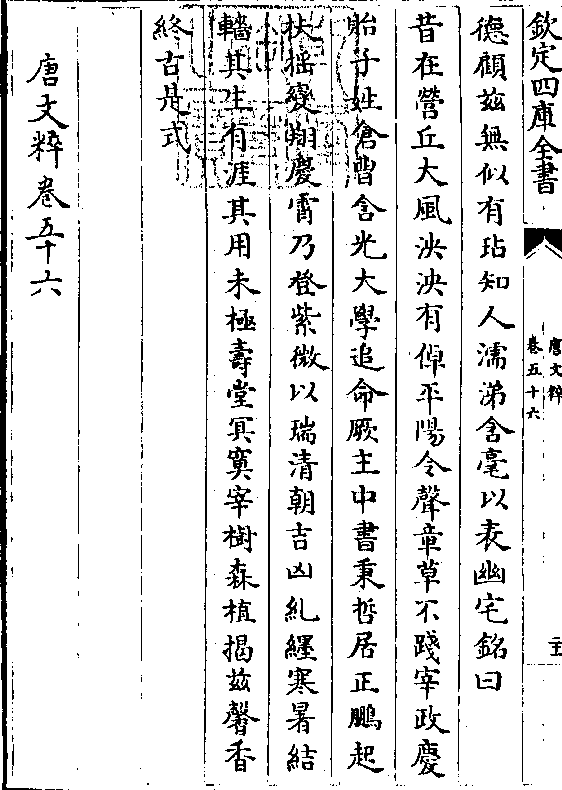 欽定四庫全書
唐文粹
卷五十六
德顧兹無似有玷知人濡涕含毫以表幽宅銘曰
昔在營丘大風泱泱有倬平陽令聲章章草不踐宰政慶
胎子姓倉曶含光大學追命厥主中書秉哲居正鵬起
扶揺變翔慶霄乃登紫微以瑞清朝吉凶糺纆寒暑結
轖其生有涯其用未極壽堂冥寞宰樹森植揭兹馨香
終古是式
唐文粹卷五十六